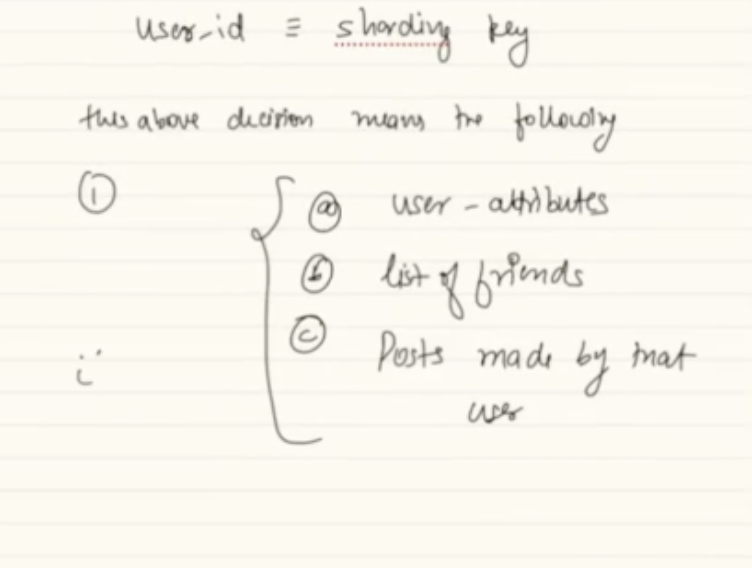 user-id ≡ sharding key
this above decision means the following
① ⓐ user - attributes
ⓑ list of friends
ⓒ Posts made by that
user